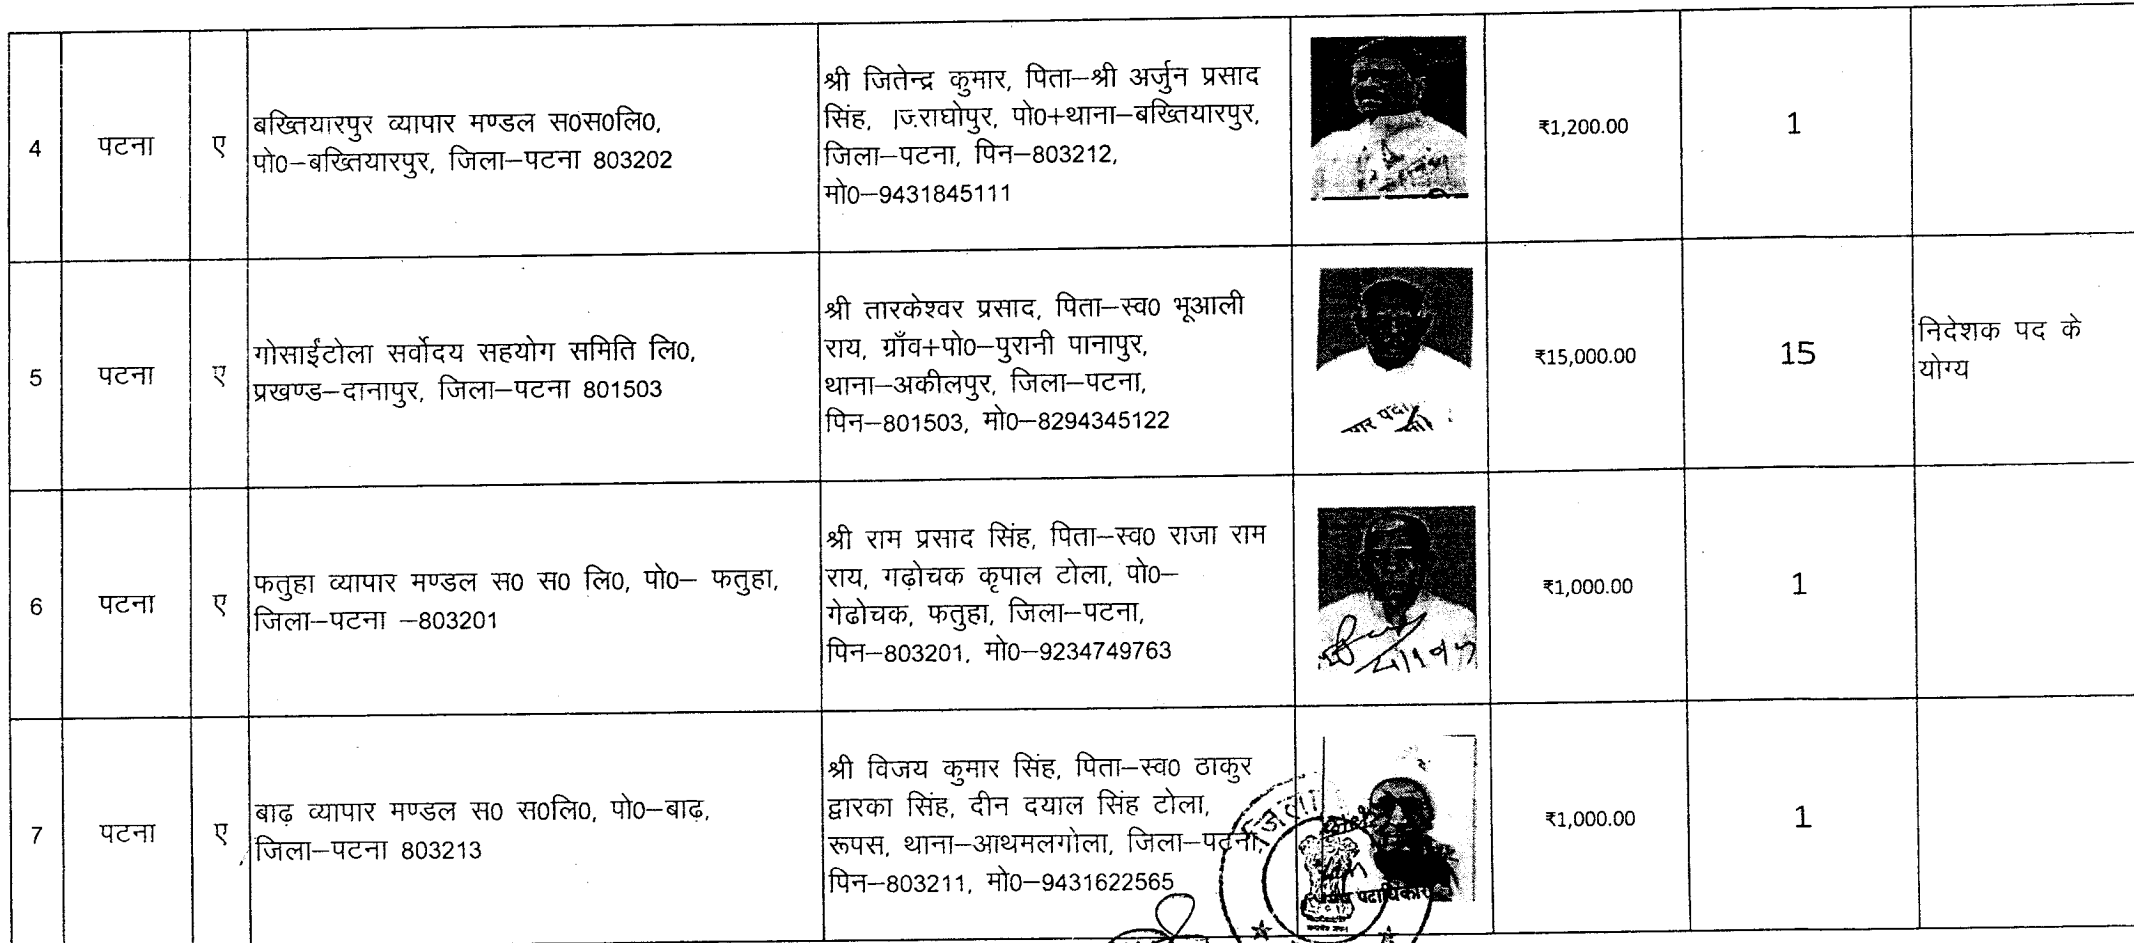 4
पटना
ए
बख्तियारपुर व्यापार मण्डल स0स0लि0,
पो0–बख्तियारपुर, जिला–पटना 803202
श्री जितेन्द्र कुमार, पिता–श्री अर्जुन प्रसाद
सिंह, राघोपुर, पो0+थाना–बख्तियारपुर,
जिला–पटना, पिन–803212,
मो0–9431845111
₹1,200.00
1
5
पटना
ए
गोसाईंटोला सर्वोदय सहयोग समिति लि0,
प्रखण्ड–दानापुर, जिला–पटना 801503
श्री तारकेश्वर प्रसाद, पिता–स्व0 भूआली
राय, ग्राँव+पो0–पुरानी पानापुर,
थाना–अकीलपुर, जिला–पटना,
पिन–801503, मो0–8294345122
₹15,000.00
15
निदेशक पद के
योग्य
6
पटना
ए
फतुहा व्यापार मण्डल स0 स0 लि0, पो0– फतुहा,
जिला–पटना –803201
श्री राम प्रसाद सिंह, पिता–स्व0 राजा राम
राय, गढ़ोचक कृपाल टोला, पो0–
गेढोचक, फतुहा, जिला–पटना,
पिन–803201, मो0–9234749763
₹1,000.00
1
7
पटना
ए
बाढ़ व्यापार मण्डल स0 स0लि0, पो0–बाढ़,
जिला–पटना 803213
श्री विजय कुमार सिंह, पिता–स्व0 ठाकुर
द्वारका सिंह, दीन दयाल सिंह टोला,
रूपस, थाना–आथमलगोला, जिला–पटना,
पिन–803211, मो0–9431622565
जिला
₹1,000.00
1